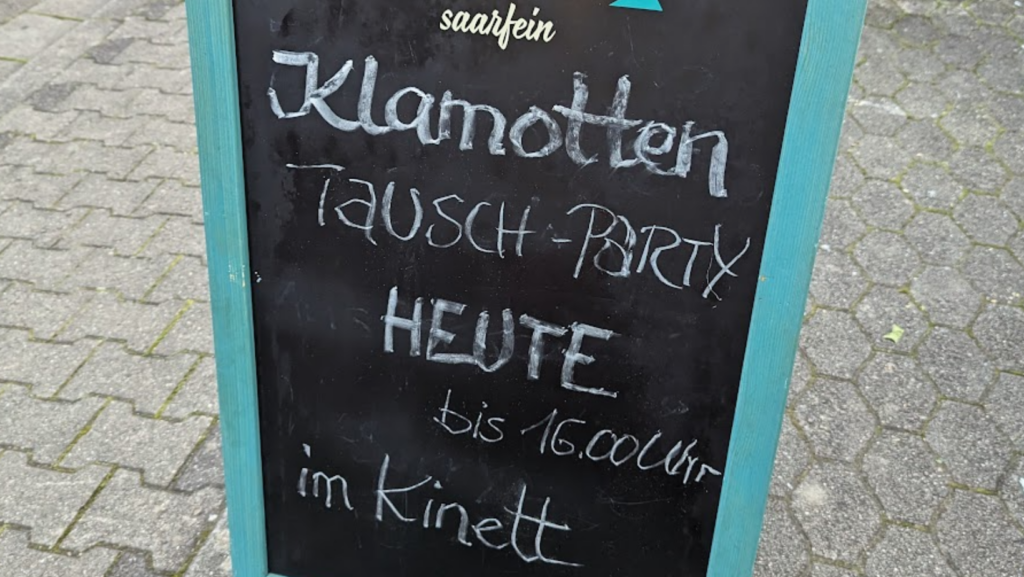 saarfein
Klamotten
TAUSCH-PARTY
HEUTE
bis 16.00 Uhr
im Kinett